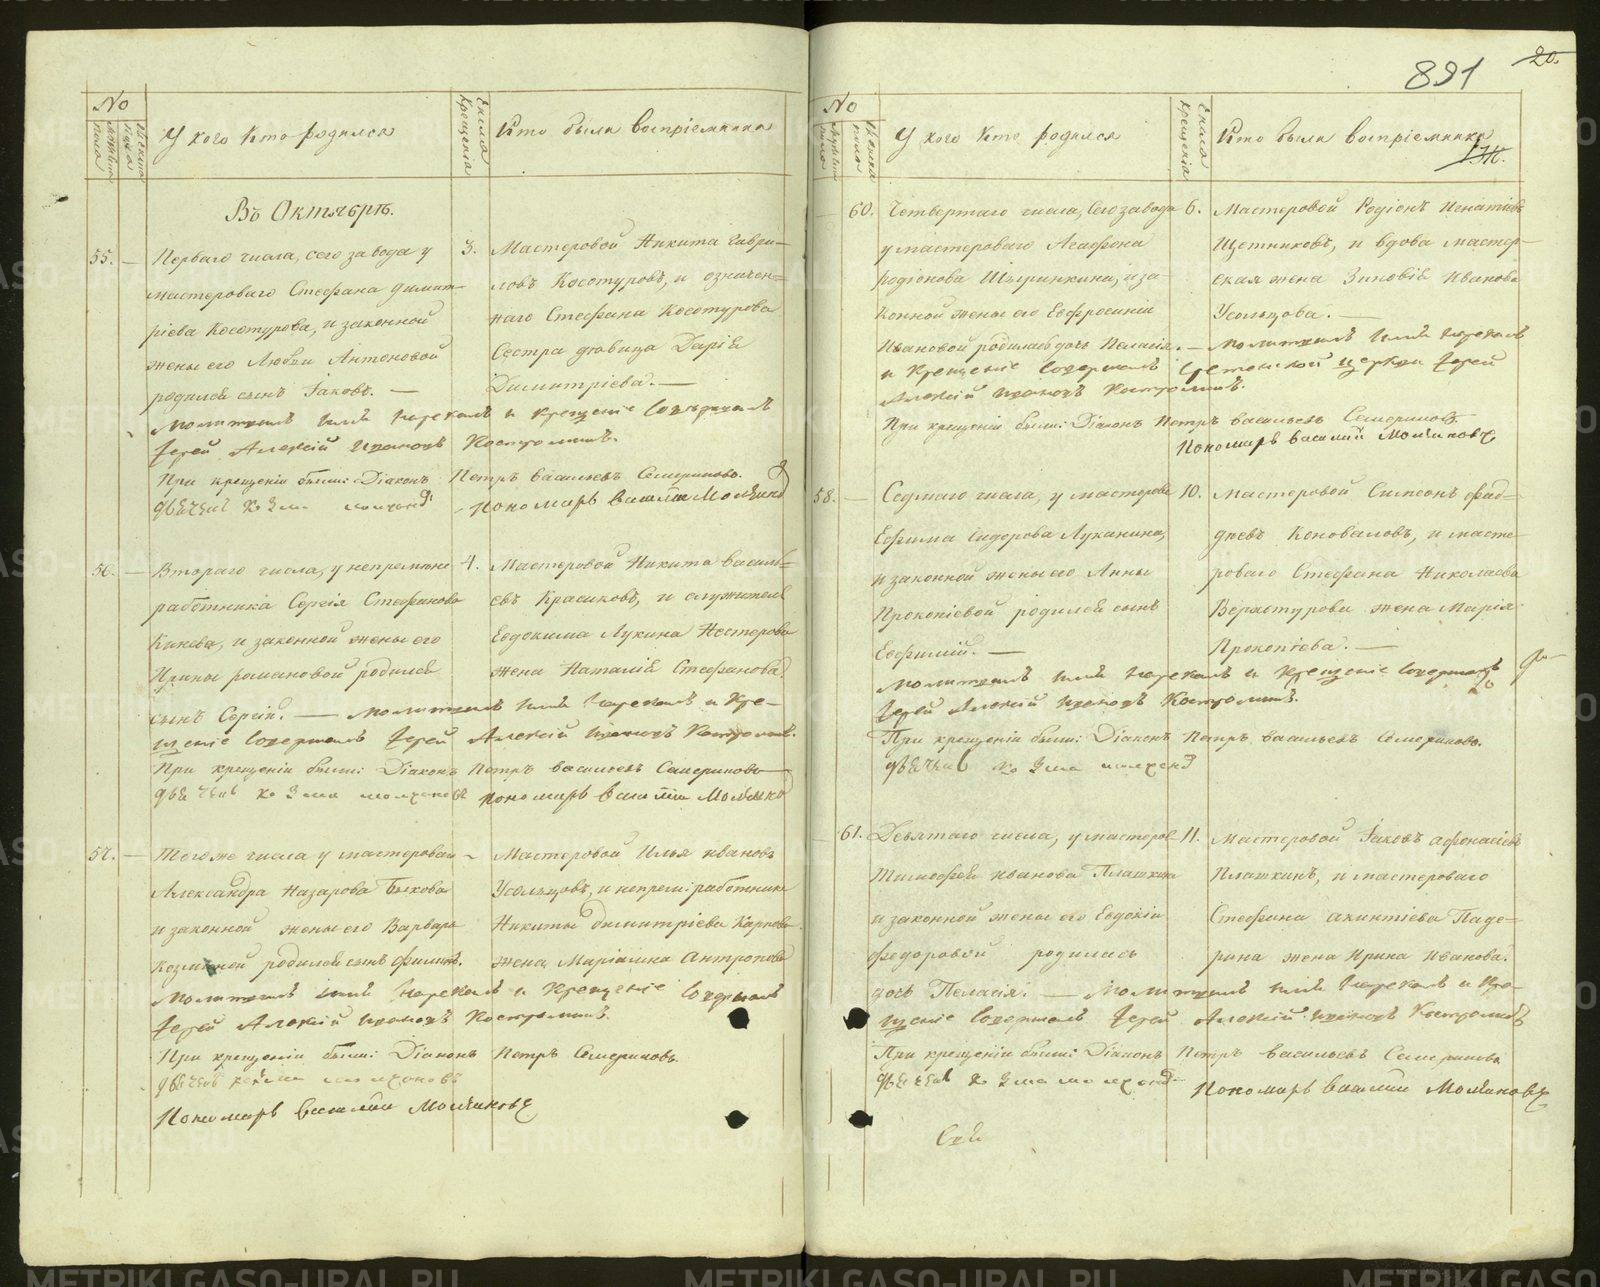 №
Мужеска пола
Женска пола
У кого кто родился
Числа Крещенія
Кто были воспріемники
Въ Октябрѣ.
55. — Перваго числа, сего завода у
мастероваго Стефана Димит-
ріева Косотурова, и законной
жены его Любви Антоновой
родился сынъ Іаковъ. —
3. Мастеровой Никита Гаври-
ловъ Косотуровъ, и означен-
наго Стефана Косотурова
Сестра дѣвица Дарія
Димитріева. —
Молитвилъ имя нарекалъ и Крещеніе Совершалъ
Іерей Алексій Іоанновъ Костроминъ.
При крещеніи были: Діаконъ Петръ Васильевъ Семериковъ.
Пономарь Василій
56. — Втораго числа, у непремѣн:
работника Сергія Стефанова
и законной жены его
Ирины Романовой родился
сынъ Сергій. —
4. Мастеровой Никита Василь-
евъ Красиковъ, и служителя
Евдокима Лукина Нестерова
жена Наталія Стефанова.
Молитвилъ имя нарекалъ и Кре-
щеніе Совершалъ Іерей Алексій Іоанновъ Костроминъ.
При крещеніи были: Діаконъ Петръ Васильевъ Семериковъ
Пономарь Василій
57. — Тогоже числа у мастероваго
Александра Назарова Быкова
и законной жены его Варвары
Козминой родился сынъ Филиппъ.
Мастеровой Илья Ивановъ
Усольцовъ, и непрем: работника
Никиты Димитріева Карпова
жена Маріамна Антропова
Молитвилъ имя нарекалъ и Крещеніе Совершалъ
Іерей Алексій Іоанновъ Костроминъ.
При крещеніи были: Діаконъ Петръ Семериковъ.
Пономарь Василій
891
20.
№
Мужеска пола
Женска пола
У кого кто родился
Числа Крещенія
Кто были воспріемники
— 60. Четвертаго числа, Сего завода
у мастероваго Агафона
Родіонова Ширинкина, и за-
конной жены его Евфросиніи
Ивановой родилась дочь Пелагія. —
6. Мастеровой Родіонъ Игнатіевъ
Щетниковъ, и вдова мастер-
ская жена Зиновія Иванова
Усольцова. —
Молитвилъ имя нарекалъ
и Крещеніе Совершалъ Срѣтенской церкви Іерей
Алексій Іоанновъ Костроминъ.
При крещеніи были: Діаконъ Петръ Васильевъ Семериковъ
Пономарь Василій
58. — Седмаго числа, у мастероваго
Ефима Сидорова Луканина,
и законной жены его Анны
Прокопіевой родился сынъ
Евфимій. —
10. Мастеровой Симеонъ Фад-
деевъ Коноваловъ, и масте-
роваго Стефана Николаева
жена Марія
Прокопіева. —
Молитвилъ имя нарекалъ и Крещеніе Совершалъ
Іерей Алексій Іоанновъ Костроминъ.
При крещеніи были: Діаконъ Петръ Васильевъ Семериковъ.
— 61. Девятаго числа, у мастеров:
Тимофея Иванова Плашкина
и законной жены его Евдокіи
Федоровой родилась
дочь Пелагія. —
11. Мастеровой Іаковъ Афонасіевъ
Плашкинъ, и мастероваго
Стефана Акинтіева Паде-
рина жена Ирина Иванова.
Молитвилъ имя нарекалъ и Кре-
щеніе Совершалъ Іерей Алексій Іоанновъ Костроминъ
При крещеніи были: Діаконъ Петръ Васильевъ Семериковъ
Пономарь Василій
METRIKI.GASO-URAL.RU